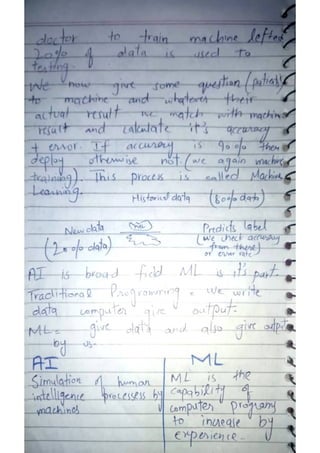 doctor to train machine lefted
20% of data is used to
testing.
We now give some question (patients)
to machine and whatever their
actual result we match with machine
result and calculate it's accuracy
+ error. If accuracy is 90% then
deploy otherwise not. (we again machine
training). This process is called Machine
Learning.
Historical data (80% data)
New data Predicts label
(20% data) (we check accuracy
from there)
or error rate
AI is broad field ML is it's part.
Traditional Programming = we write
data computer give output.
ML = give data and also give output
by us.
AI ML
Simulation of human ML is the
intelligence processess by capability of
machines computer programs
to increase by
experience.